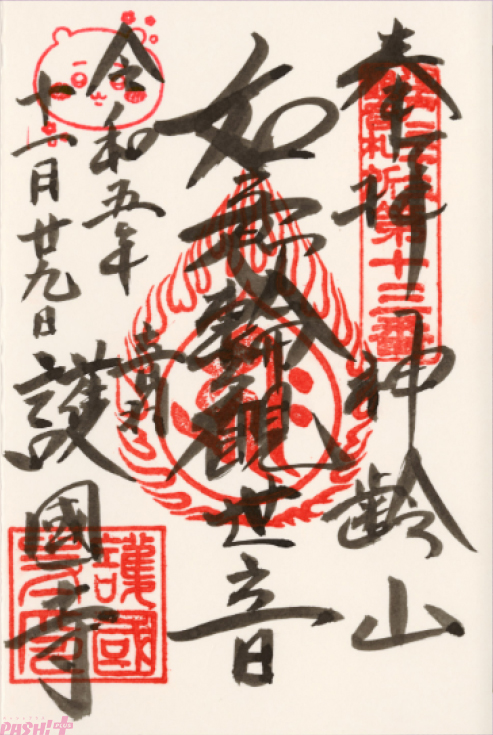 奉拝 神齢山
如意輪観世音
護國寺
令和五年
十一月廿九日
第十三番
護國
PASH!+